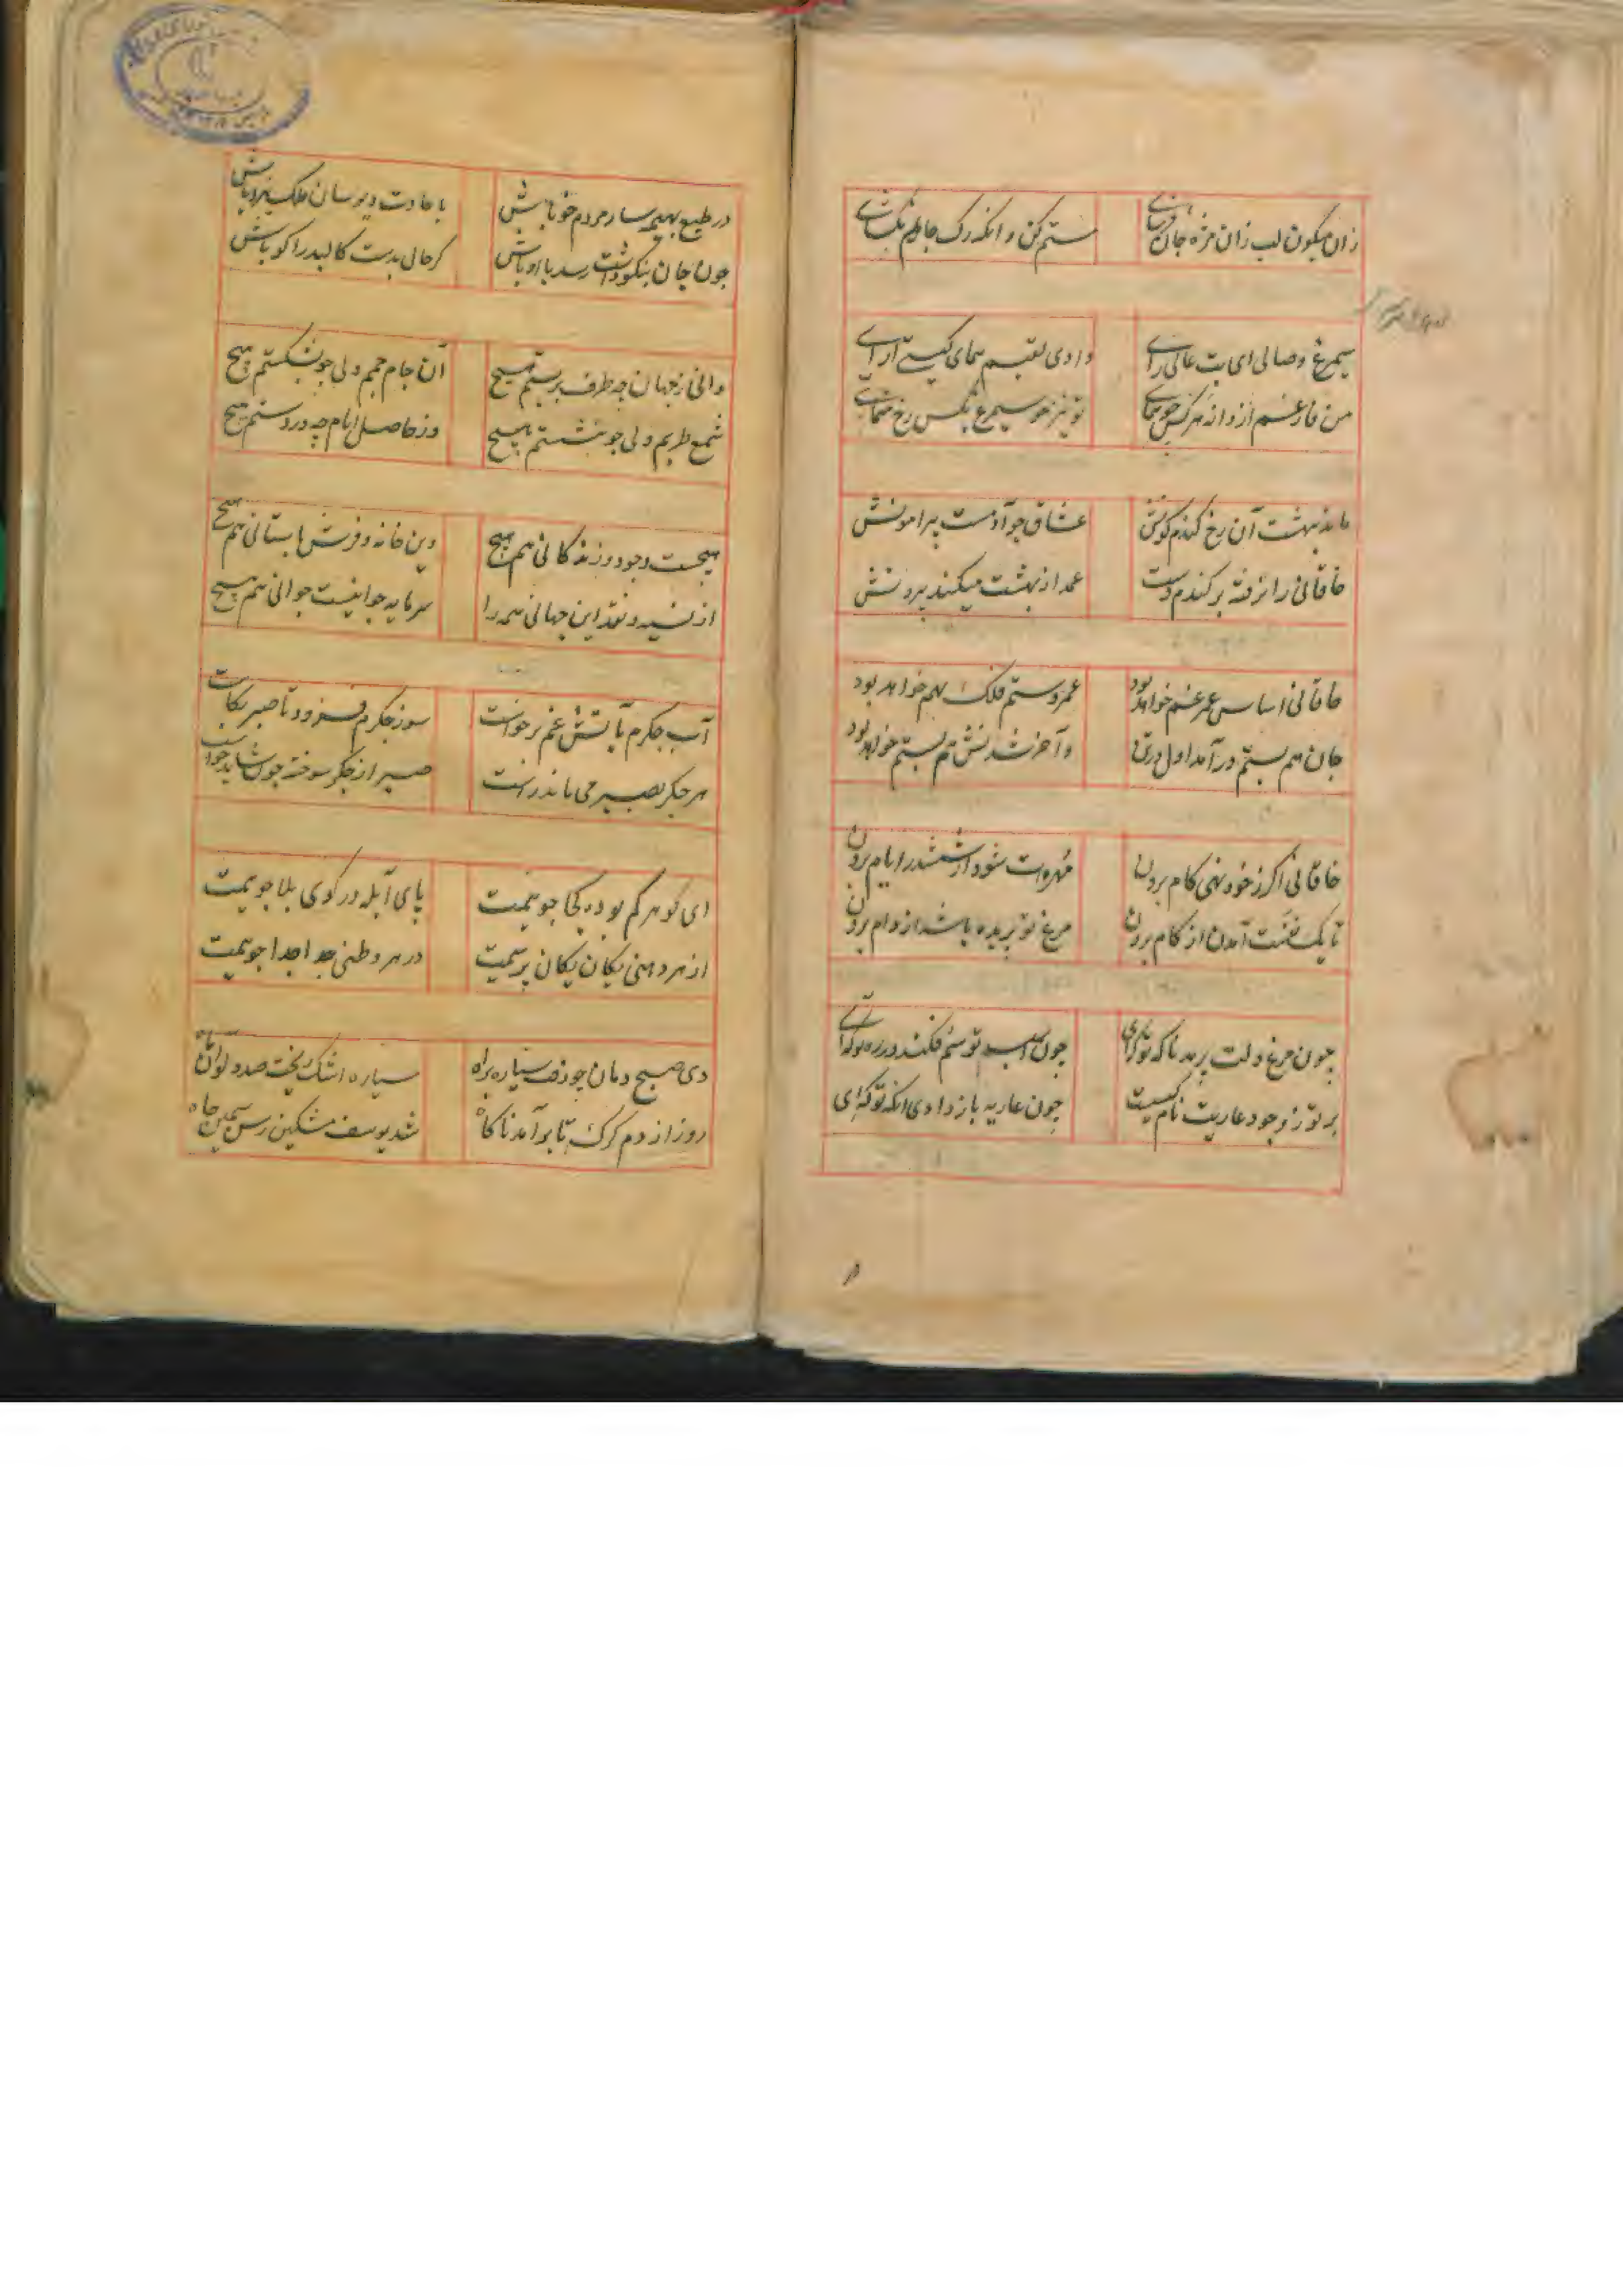 زان میکون لب زان مزه جان
مستم کن و انکه رک جانم بکشای
سیمرغ وصالی ای بت عالی رای
دادی لقبم همای کیتی آرای
من فارغم از دانه هرکس چو همای
تو نیز چو سیمرغ بکس رخ منمای
ماند ببهشت آن رخ کندم کونش
عشاق چو آدمست پیرامونش
خاقانی را نرفته بر کندم دست
عمدا ز بهشت میکند بیرونش
خاقانی اساس عمر غم خواهد بود
مهر و ستم فلک بهم خواهد بود
جان هم بستم درآمد اول در تن
و آخر شدنش هم بستم خواهد بود
خاقانی اکر ز خود نهی کام برون
مهره‌ات شود از ششدر ایام برون
تا یک نفست آمدن از کام برون
مرغ تو پریده باشد از دام برون
چون مرغ دلت پرید ناکه تو کرای
چون اسب تو سم فکند در ره تو کرای
بر تو ز وجود عاریت نام کسیست
چون عاریه باز دادی انکه تو کرای
در طبع بهیمه سار مردم خو باش
با عادت دیو سان ملک نیرو باش
چون جان بنکو داشت رسد با او باش
کر حال بدست کالبد را کو باش
دانی ز جهان چه طرف بربستم هیچ
وز حاصل ایام چه در دستم هیچ
شمع طربم ولی چو بنشستم هیچ
آن جام جمم ولی چو بشکستم هیچ
هیچست وجود و زندکانی هم هیچ
وین خانه و فرش باستانی هم هیچ
از نسیه و نقد این جهانی همه را
سرمایه جوانیست جوانی هم هیچ
آب جکرم بآتش غم برخواست
سوز جکرم فزود تا صبر بکاست
هر جکر بصبر می ماند راست
صبر از جکر سوخته چون شاید خواست
ای کوهر کم بوده کجا جویمت
پای آبله در کوی بلا جویمت
از هر دهنی یکان یکان پرسمت
در هر وطنی جدا جدا جویمت
دی صبح دمان چو رفت سیاره براه
سیاره اشک ریخت صد دلو آن ماه
روز از دم کرک تا برآمد ناکاه
شد یوسف مشکین رسن سیمین چاه